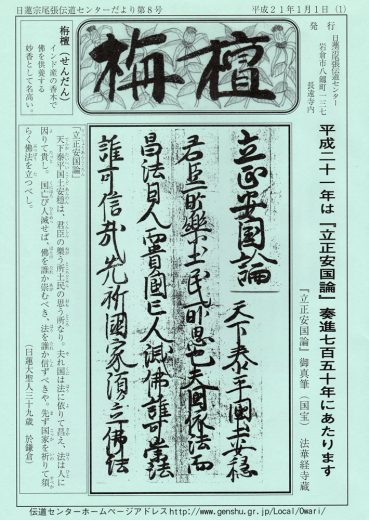 日蓮宗尾張伝道センターだより第8号
平成21年1月1日 (1)
栴檀
栴檀（せんだん）
インド産の香木で
佛を供養する
妙香として名高い。
発行
日蓮宗尾張伝道センター
岩倉市八剱町一三七
長遠寺内
平成二十一年は『立正安国論』奏進七百五十年にあたります
『立正安国論』御真筆（国宝）法華経寺蔵
立正安国論
天下泰平國土安穏
君臣所樂土民所思也夫國依法而
昌法因人而貴國亡人滅佛誰可崇法
誰可信哉先祈國家須立佛法
『立正安国論』
天下泰平国土安穏は、君臣の樂う所土民の思う所なり。夫れ国は法に依りて昌え、法は人に
因りて貴し。国亡び人滅せば、佛を誰か崇むべき、法を誰か信ずべきや。先ず国家を祈りて須
らく佛法を立つべし。
（日蓮大聖人三十九歳 於鎌倉）
伝道センターホームページアドレスhttp://www.genshu.gr.jp/Local/Owari/